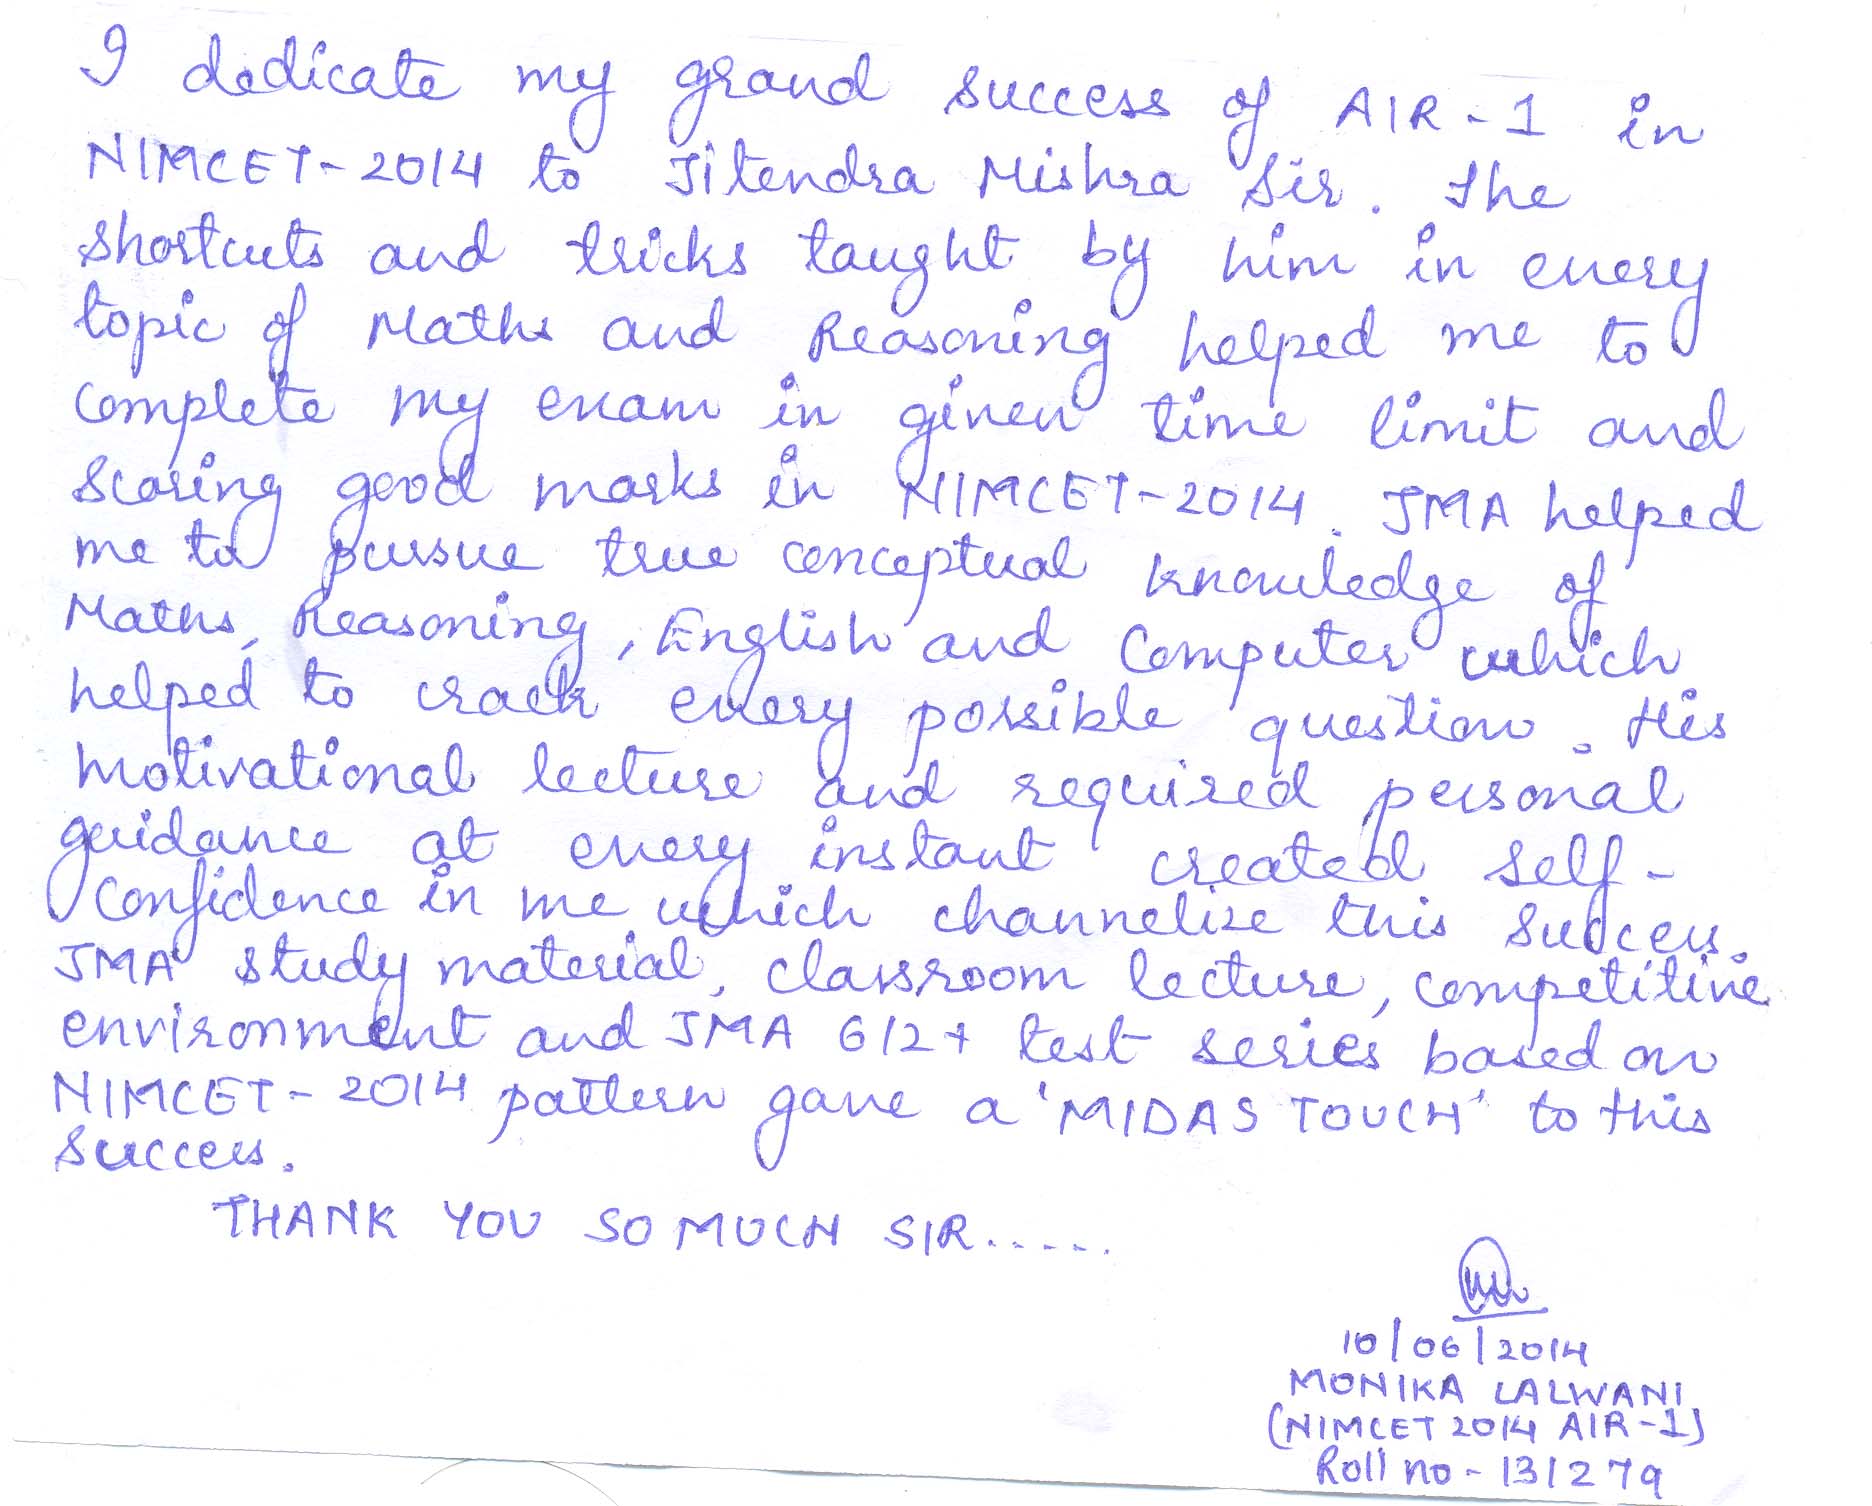 I dedicate my grand success of AIR-1 in
NIMCET-2014 to Jitendra Mishra Sir. The
shortcuts and tricks taught by him in every
topic of Maths and Reasoning helped me to
complete my exam in given time limit and
scoring good marks in NIMCET-2014. JMA helped
me to pursue true conceptual knowledge of
Maths, Reasoning, English and Computer which
helped to crack every possible question. His
motivational lecture and required personal
guidance at every instant created self-
confidence in me which channelize this success.
JMA study material, classroom lecture, competitive
environment and JMA 612+ test series based on
NIMCET-2014 pattern gave a 'MIDAS TOUCH' to this
success.
THANK YOU SO MUCH SIR.....
10/06/2014
MONIKA LALWANI
(NIMCET 2014 AIR-1)
Roll no - 131279